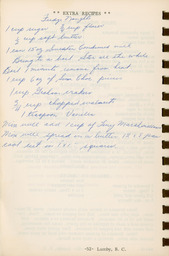 ** EXTRA RECIPES **
Fudge Nougats
1 cup sugar ¾ cup flour
½ cup soft butter
1 can Sweetened Condensed milk
Bring to a boil Stir all the while
Boil 5 minutes remove from heat
1 cup 6 oz of Sem Choc pieces
1 cup Graham crackers
¾ cup chopped walnuts
1 teaspoon Vanilla
Mix well add 1 cup of Tiny Marshmallows
Mix well spread in a butter
cool cut in 1x1" squares
-52- Lumby, B. C.